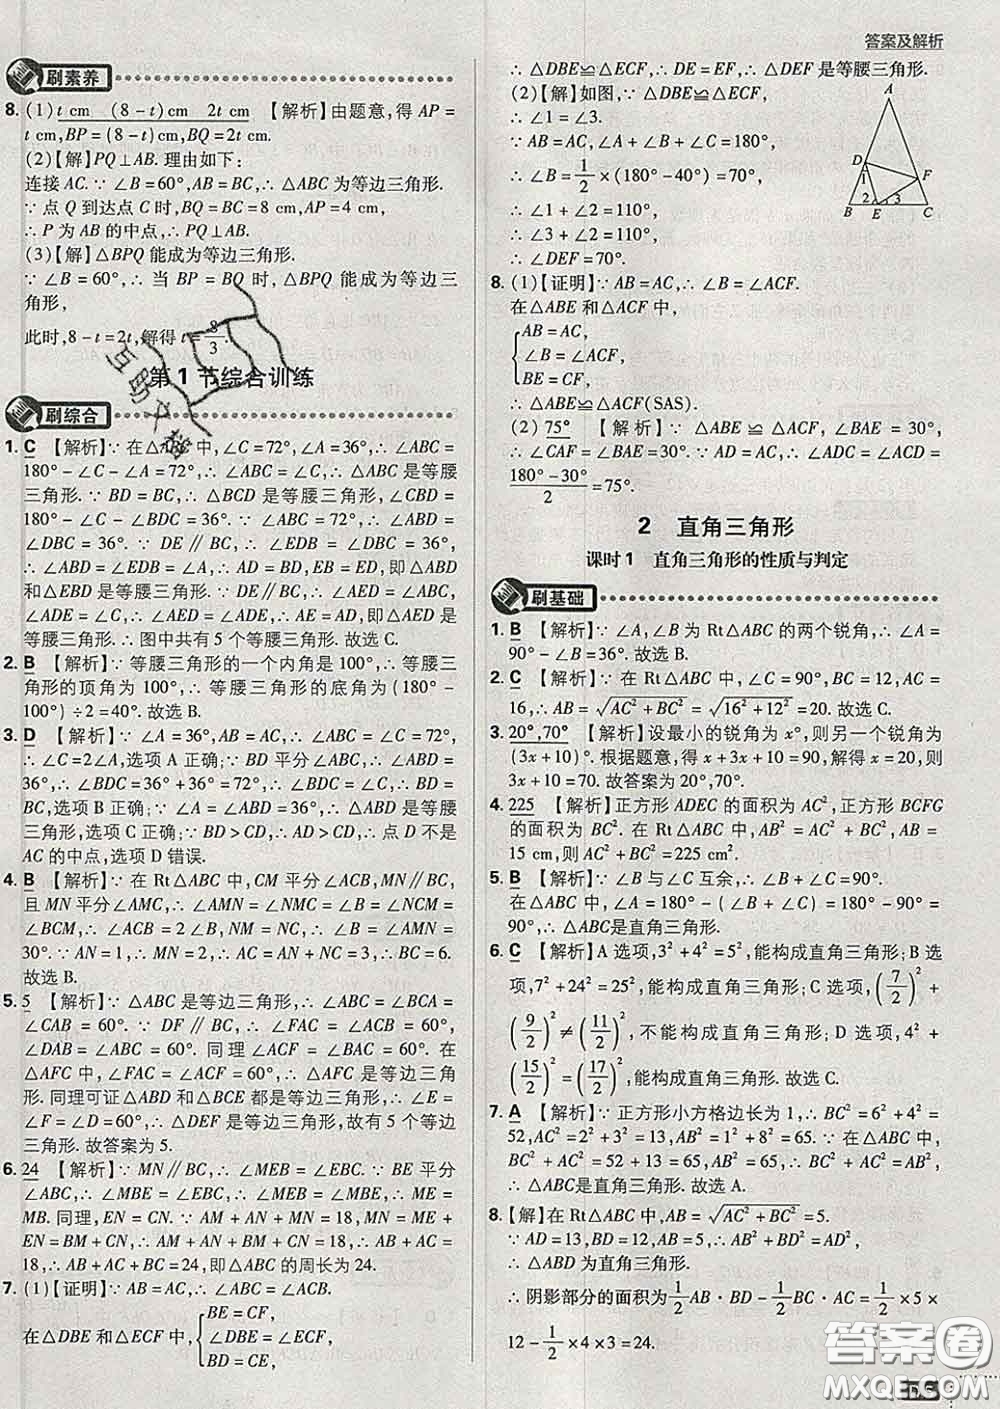 答案及解析
刷素养
8. (1)t cm (8-t)cm 2t cm 【解析】由题意,得 AP=
t cm,BP=(8-t)cm,BQ=2t cm.
(2)【解】PQ⊥AB. 理由如下:
连接 AC.∵∠B=60°,AB=BC,∴△ABC 为等边三角形.
∵点 Q 到达点 C 时,BQ=BC=8 cm,AP=4 cm,
∴P 为 AB 的中点,∴PQ⊥AB.
(3)【解】△BPQ 能成为等边三角形.
∵∠B=60°,∴当 BP=BQ 时,△BPQ 能成为等边三
角形,
此时,8-t=2t,解得 t=8/3.
第 1 节综合训练
刷综合
1. C 【解析】∵在△ABC 中,∠C=72°,∠A=36°,∴∠ABC=
180°-∠C-∠A=72°,∴∠ABC=∠C,∴△ABC 是等腰
三角形.∵BD=BC,∴△BCD 是等腰三角形,∠CBD=
180°-∠C-∠BDC=36°.∵∠ABC=72°,∴∠ABD=
∠DBC=36°.∵DE∥BC,∴∠EDB=∠DBC=36°,
∴∠ABD=∠EDB=∠A,∴AD=BD,EB=ED,即△ABD
和△EBD 是等腰三角形.∵DE∥BC,∴∠AED=∠ABC,
∠ADE=∠C,∴∠AED=∠ADE,∴AE=AD,即△AED 是
等腰三角形.∴图中共有 5 个等腰三角形.故选 C.
2. B 【解析】∵等腰三角形的一个内角是 100°,∴等腰三
角形的顶角为 100°,∴等腰三角形的底角为(180°-
100°)÷2=40°.故选 B.
3. D 【解析】∵∠A=36°,AB=AC,∴∠ABC=∠C=72°,
∴∠C=2∠A,选项 A 正确;∵BD 平分∠ABC,∴∠ABD=
36°,∴∠BDC=36°+36°=72°,∴∠BDC=∠C,∴BD=
BC,选项 B 正确;∵∠A=∠ABD=36°,∴△ABD 是等腰
三角形,选项 C 正确;∵BD>CD,∴AD>CD,∴点 D 不是
AC 的中点,选项 D 错误.
4. B 【解析】∵在 Rt△ABC 中,CM 平分∠ACB,MN∥BC,
且 MN 平分∠AMC,∴∠AMN=∠NMC=∠B,∠NCM=
∠BCM,∴∠ACB=2∠B,NM=NC,∴∠B=∠AMN=
30°.∵AN=1,∴MN=2,∴AC=AN+NC=3,∴BC=6.
故选 B.
5. 5 【解析】∵△ABC 是等边三角形,∴∠ABC=∠BCA=
∠CAB=60°.∵DF∥BC,∴∠FAC=∠ACB=60°,
∠DAB=∠ABC=60°.同理∠ACF=∠BAC=60°.在
△AFC 中,∠FAC=∠ACF=60°,∴△AFC 是等边三角
形.同理可证△ABD 和△BCE 都是等边三角形,∴∠E=
∠F=∠D=60°,∴△DEF 是等边三角形,故有 5 个等边
三角形.故答案为 5.
6. 24 【解析】∵MN∥BC,∴∠MEB=∠EBC.∵BE 平分
∠ABC,∴∠MBE=∠EBC,∴∠MEB=∠MBE,∴ME=
MB.同理,EN=CN.∵AM+AN+MN=18,MN=ME+
EN=BM+CN,∴AM+AN+BM+CN=18,∴AB+AC=
18,∴AB+AC+BC=24,即△ABC 的周长为 24.
7. (1)【证明】∵AB=AC,∴∠ABC=∠ACB.
在△DBE 和△ECF 中,{BE=CF,
∠DBE=∠ECF,
BD=CE,
∴△DBE≌△ECF,∴DE=EF,∴△DEF 是等腰三角形.
(2)【解】如图,∵△DBE≌△ECF,
∴∠1=∠3.
∵AB=AC,∠A+∠B+∠C=180°,
∴∠B=1/2×(180°-40°)=70°,
∴∠1+∠2=110°,
∴∠3+∠2=110°,
∴∠DEF=70°.
A
D
1
F
2
3
B
E
C
8. (1)【证明】∵AB=AC,∴∠B=∠ACF.
在△ABE 和△ACF 中,
{AB=AC,
∠B=∠ACF,
BE=CF,
∴△ABE≌△ACF(SAS).
(2)75° 【解析】∵△ABE≌△ACF,∠BAE=30°,
∴∠CAF=∠BAE=30°.∵AD=AC,∴∠ADC=∠ACD=
(180°-30°)/2=75°.
2 直角三角形
课时 1 直角三角形的性质与判定
刷基础
1. B 【解析】∵∠A,∠B 为 Rt△ABC 的两个锐角,∴∠A=
90°-∠B=36°.故选 B.
2. C 【解析】∵在 Rt△ABC 中,∠C=90°,BC=12,AC=
16,∴AB=√(AC²+BC²)=√(16²+12²)=20.故选 C.
3. 20°,70° 【解析】设最小的锐角为 x°,则另一个锐角为
(3x+10)°.根据题意,得 x+3x+10=90,解得 x=20,即
3x+10=70.故答案为 20°,70°.
4. 225 【解析】正方形 ADEC 的面积为 AC²,正方形 BCFG
的面积为 BC².在 Rt△ABC 中,AB²=AC²+BC²,AB=
15 cm,则 AC²+BC²=225 cm².
5. B 【解析】∵∠B 与∠C 互余,∴∠B+∠C=90°.
在△ABC 中,∠A=180°-(∠B+∠C)=180°-90°=
90°,∴△ABC是直角三角形.
6. C 【解析】A 选项,3²+4²=5²,能构成直角三角形;B 选
项,7²+24²=25²,能构成直角三角形;C 选项,(7/2)²+
(9/2)²≠(11/2)²,不能构成直角三角形;D 选项,4²+
(15/2)²=(17/2)²,能构成直角三角形.故选 C.
7. A 【解析】∵正方形小方格边长为 1,∴BC²=6²+4²=
52,AC²=2²+3²=13,AB²=1²+8²=65.∵在△ABC 中,
BC²+AC²=52+13=65,AB²=65,∴BC²+AC²=AB²,
∴△ABC是直角三角形.故选 A.
8. 【解】在 Rt△ABC 中,AB=√(AC²+BC²)=5.
∵AD=13,BD=12,AB=5,∴AB²+BD²=AD²,
∴△ABD为直角三角形.
∴阴影部分的面积为1/2AB·BD-1/2BC·AC=1/2×5×
12-1/2×4×3=24.
互助文档
答案圈
MXQE.COM
D5